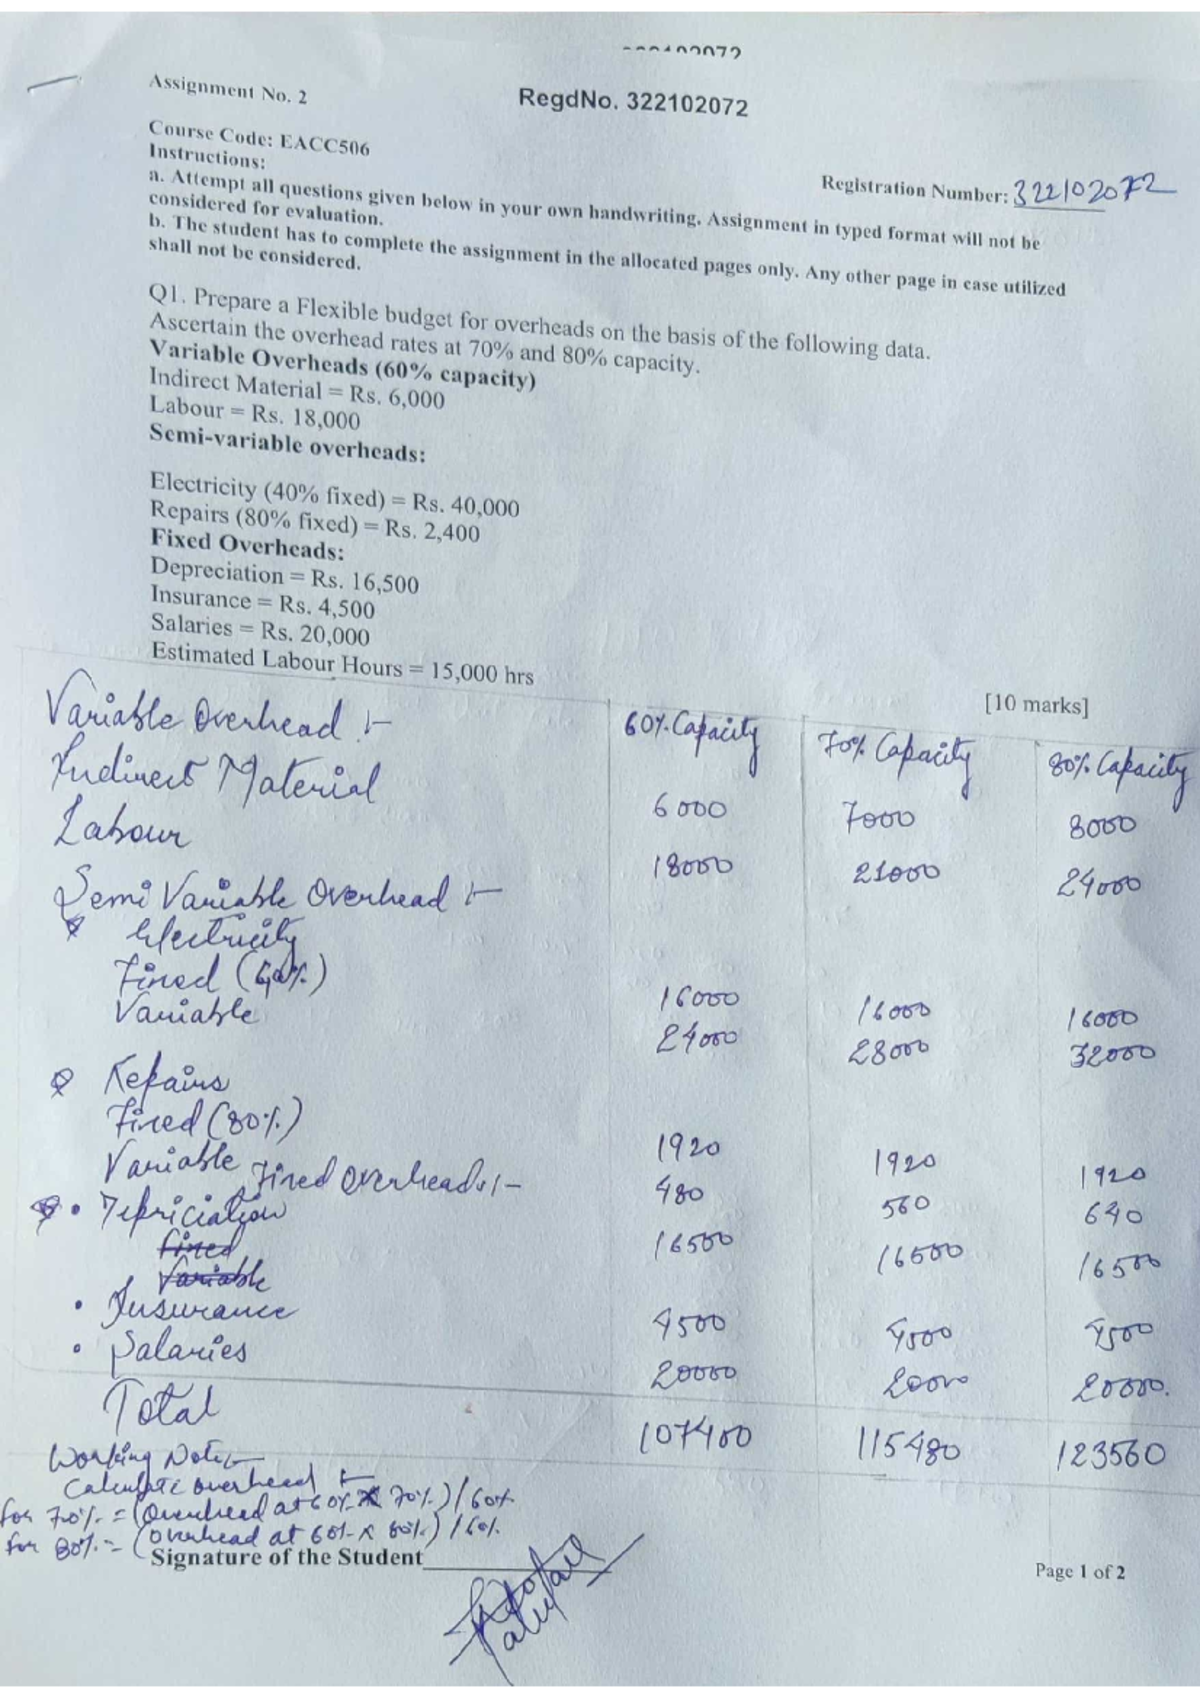 Assignment No. 2
RegdNo. 322102072
Course Code: EACC506
Instructions:
Registration Number: 322102072
a. Attempt all questions given below in your own handwriting. Assignment in typed format will not be
considered for evaluation.
b. The student has to complete the assignment in the allocated pages only. Any other page in case utilized
shall not be considered.
Q1. Prepare a Flexible budget for overheads on the basis of the following data.
Ascertain the overhead rates at 70% and 80% capacity.
Variable Overheads (60% capacity)
Indirect Material = Rs. 6,000
Labour = Rs. 18,000
Semi-variable overheads:
Electricity (40% fixed) = Rs. 40,000
Repairs (80% fixed) = Rs. 2,400
Fixed Overheads:
Depreciation = Rs. 16,500
Insurance = Rs. 4,500
Salaries = Rs. 20,000
Estimated Labour Hours = 15,000 hrs
[10 marks]
Variable Overhead :- 60% Capacity 70% Capacity 80% Capacity
Indirect Material 6000 7000 8000
Labour 18000 21000 24000
Semi Variable Overhead :-
Electricity
Fixed (40%) 16000 16000 16000
Variable 24000 28000 32000
Repairs
Fixed (80%) 1920 1920 1920
Variable 480 560 640
Fixed Overheads :-
• Depriciation 16500 16500 16500
fixed
Variable
• Insurance 4500 4500 4500
• Salaries 20000 20000 20000.
Total 107400 115480 123560
Working Note :-
Calculate overhead :-
for 70% = (Overhead at 60% X 70%) / 60%
for 80% = (overhead at 60% x 80%) / 60%
Signature of the Student
Page 1 of 2